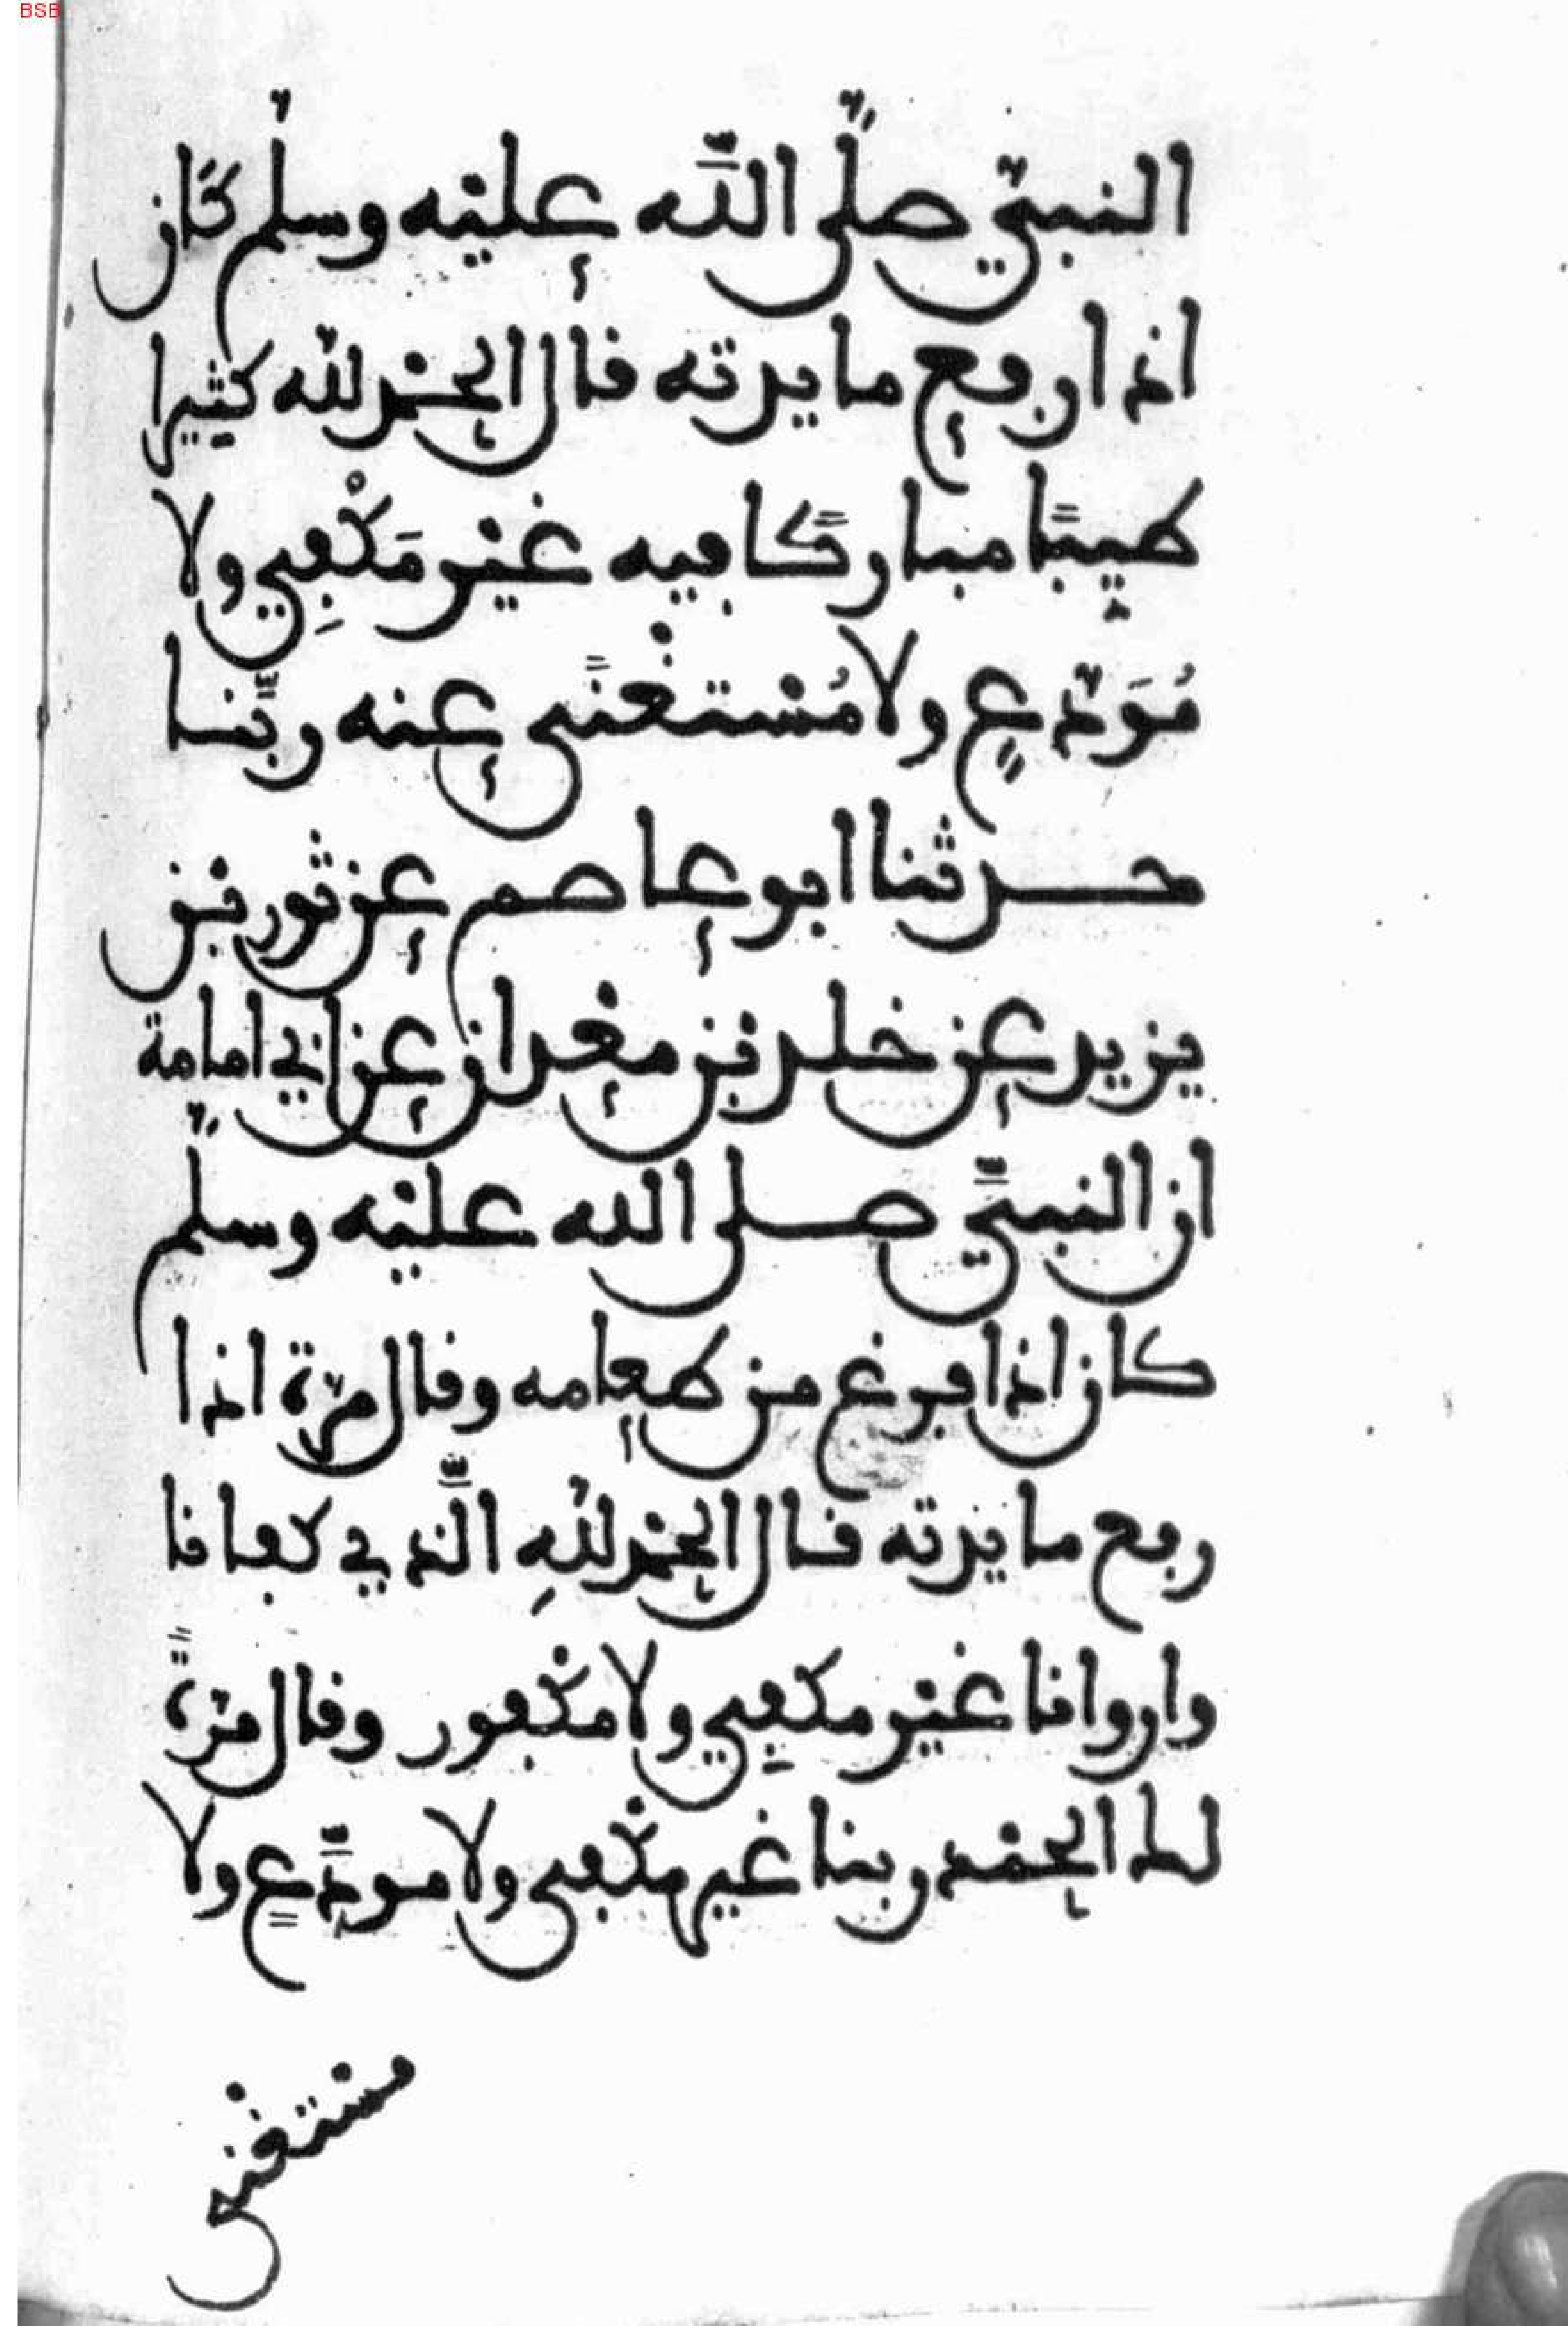 BSB
النبيّ صلّى اللّه عليْه وسلّم كَان
اذا رفع مايدته قال الحمْد لله كثيرا
طيبًا مباركًا فيه غيْر مَكْفِي ولا
مُوَدّعٍ ولا مُسْتغْنًى عنه ربّنا
حدثنا ابو عاصم عن ثور بْن
يزيد عن خلد بْن معْدان عن ابي امامة
ان النبيّ صلى الله عليْه وسلّم
كان اذا فرغ من طعامه وقال مرّة اذا
رفع مايدته قال الحمْد للهِ الّذي كفانا
واروانا غيْر مكفي ولا مكْفور وقال مرّةً
لك الحمْد ربنا غير مكْفى ولا مودّعٍ ولا
مستغنى